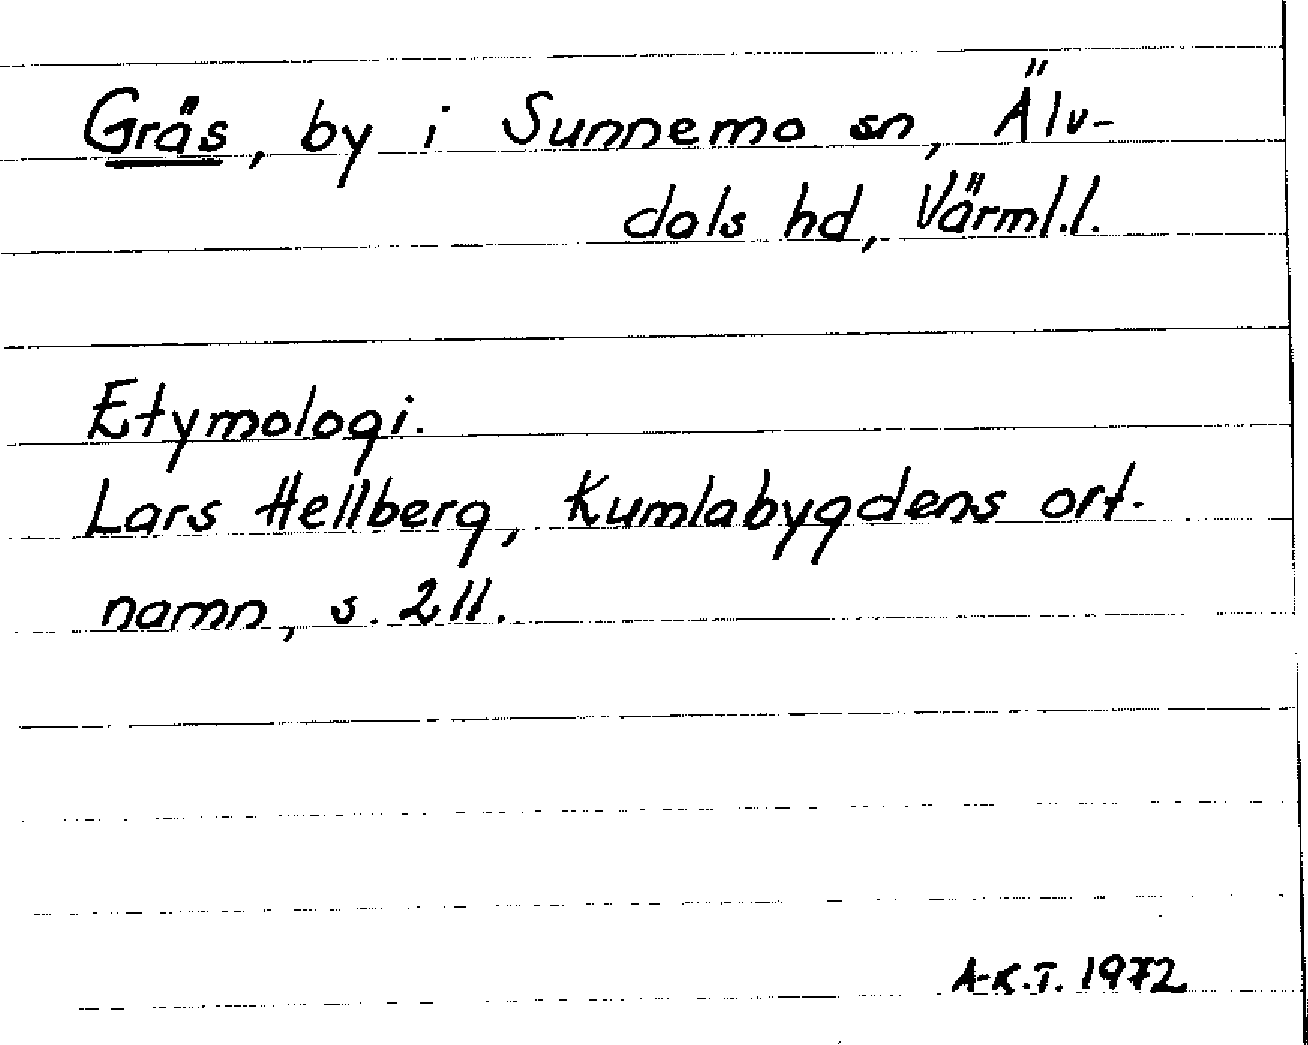 Gräs, by i Sunnemo sn, Älv-
dals hd, Värml.l.
Etymologi.
Lars Hellberg, Kumlabygdens ort-
namn, s. 211.
A-K.T. 1972